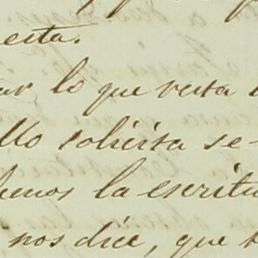 esta.
ar lo que resta
ello solicita se-
henos la escritu
nos dice, que